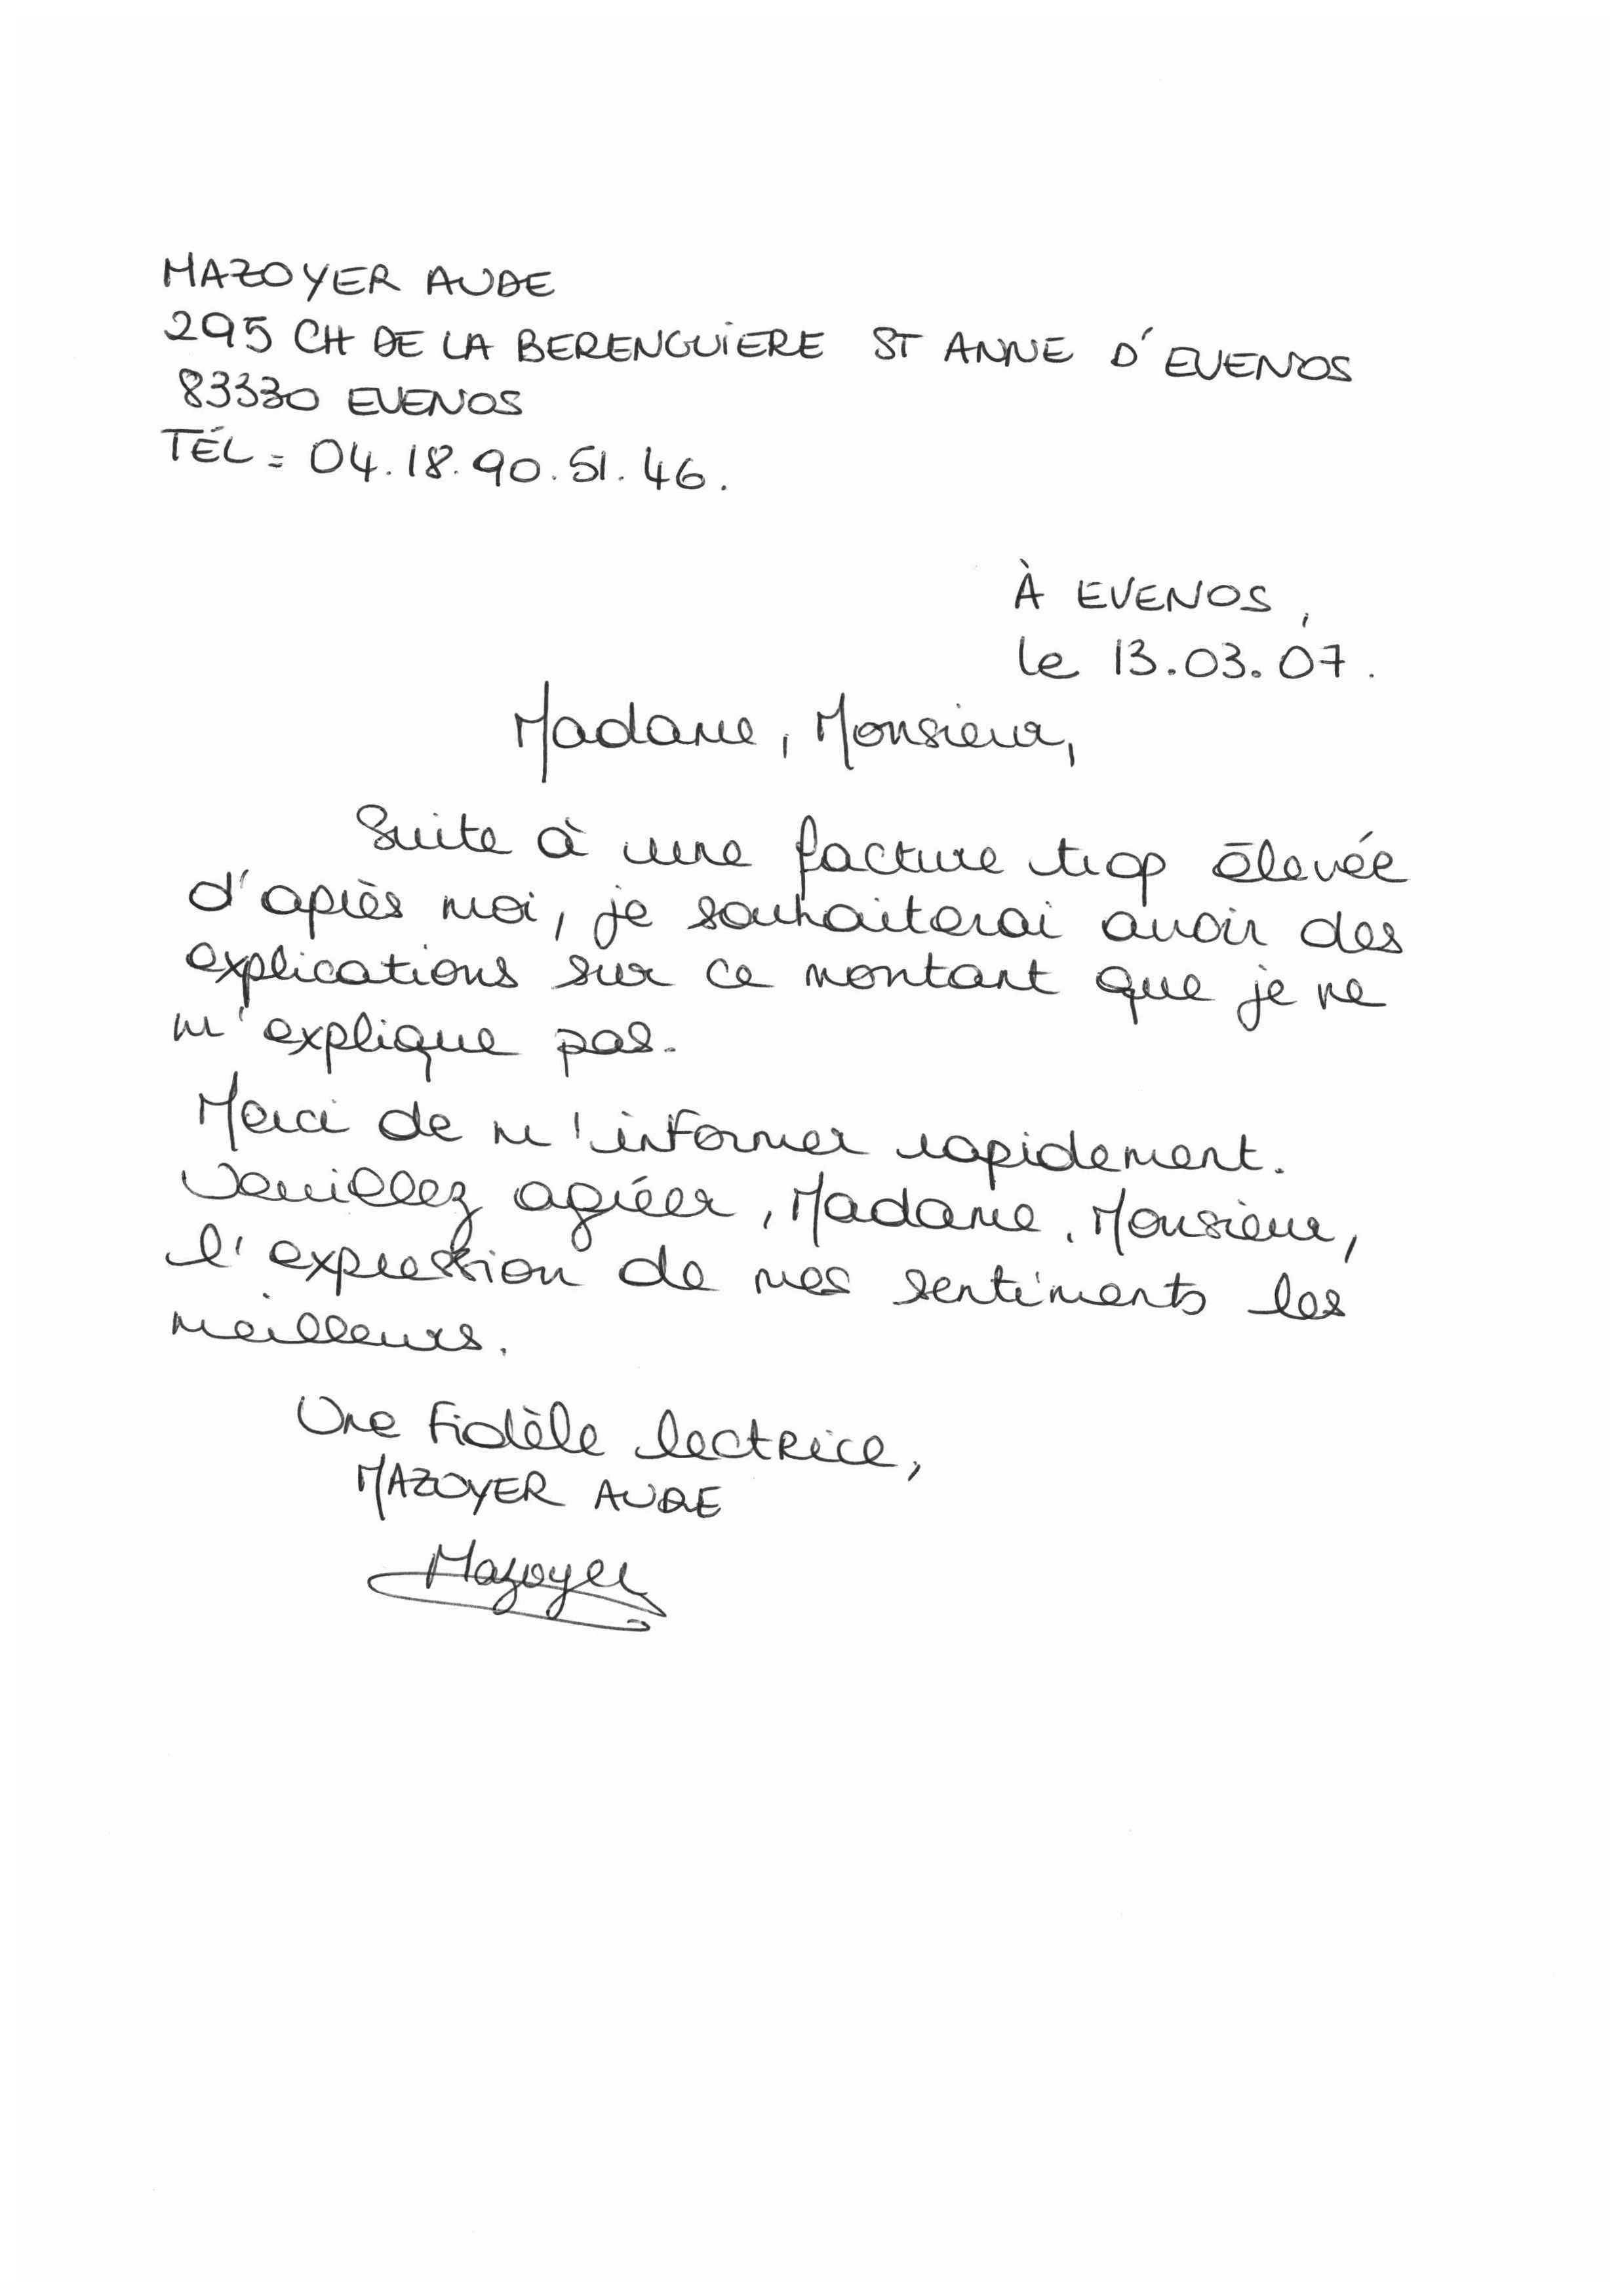 MAZOYER AUDE
295 CH DE LA BERENGUIERE ST ANNE D'EVENOS
83330 EVENOS
TÉL = 04.18.90.51.46.
À EVENOS,
le 13.03.07.
Madame, Monsieur,
Suite à une facture trop élevée
d'après moi, je souhaiterai avoir des
explications sur ce montant que je ne
m'explique pas.
Merci de m'informer rapidement.
Veuillez agréer, Madame, Monsieur,
l'expression de mes sentiments les
meilleurs.
Une fidèle lectrice,
MAZOYER AUDE
Mazoyer